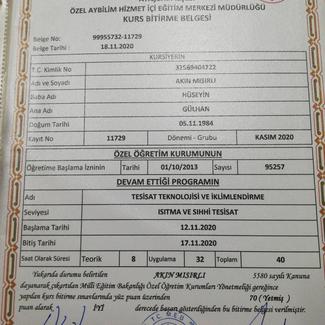 ÖZEL AYBİLİM HİZMET İÇİ EĞİTİM MERKEZİ MÜDÜRLÜĞÜ
KURS BİTİRME BELGESİ
Belge No : 99955732-11729
Belge Tarihi : 18.11.2020
KURSİYERİN
T.C. Kimlik No
Adı ve Soyadı AKIN MISIRLI
Baba Adı HÜSEYİN
Ana Adı GÜLHAN
Doğum Tarihi 05.11.1984
Kayıt No 11729 Dönemi - Grubu KASIM 2020
ÖZEL ÖĞRETİM KURUMUNUN
Öğretime Başlama İzninin Tarihi 01/10/2013 Sayısı 95257
DEVAM ETTİĞİ PROGRAMIN
Adı TESİSAT TEKNOLOJİSİ VE İKLİMLENDİRME
Seviyesi ISITMA VE SIHHİ TESİSAT
Başlama Tarihi 12.11.2020
Bitiş Tarihi 17.11.2020
Saat Olarak Süresi Teorik 8 Uygulama 32 Toplam 40
Yukarıda durumu belirtilen AKIN MISIRLI 5580 sayılı Kanuna
dayanarak çıkarılan Milli Eğitim Bakanlığı Özel Öğretim Kurumları Yönetmeliği gereğince
yapılan kurs bitirme sınavlarında yüz puan üzerinden 70 ( Yetmiş )
puan alarak İYİ derecede başarı gösterdiğinden bu bitirme belgesi verilmiştir.